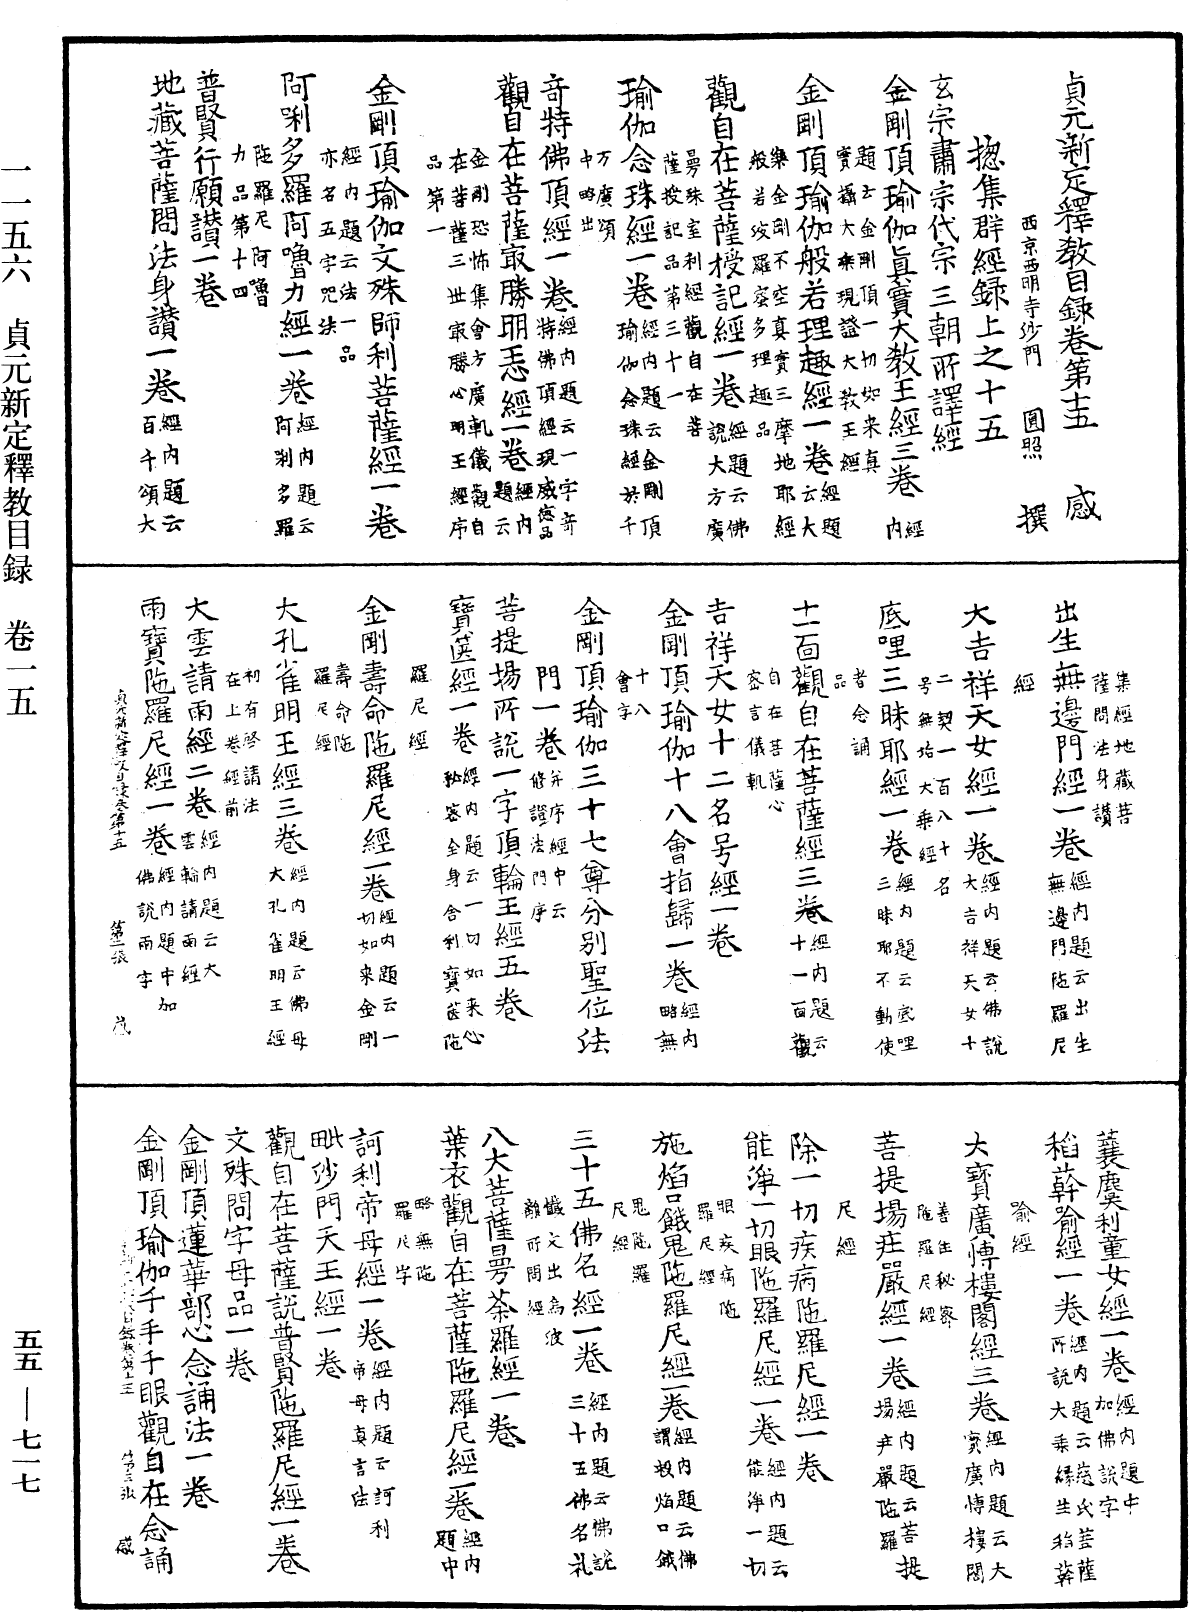 貞元新定釋教目錄卷第十五　感
西京西明寺沙門　圓照　撰
揔集群經錄上之十五
玄宗肅宗代宗三朝所譯經
金剛頂瑜伽真實大教王經三卷 經內題云金剛頂一切如來真實攝大乘現證大教王經
金剛頂瑜伽般若理趣經一卷 經題云大樂金剛不空真實三摩地耶經般若波羅蜜多理趣品
觀自在菩薩授記經一卷 經題云佛說大方廣曼殊室利經觀自在菩薩授記品第三十一
瑜伽念珠經一卷 經內題云金剛頂瑜伽念珠經於十万廣頌中略出
奇特佛頂經一卷 經內題云一字奇特佛頂經現威德品
觀自在菩薩最勝明王經一卷 經內題云金剛恐怖集會方廣軌儀觀自在菩薩三世最勝心明王經序品第一
金剛頂瑜伽文殊師利菩薩經一卷 經內題云法一品亦名五字呪法
阿唎多羅阿嚕力經一卷 經內題云阿唎多羅陁羅尼阿嚕力品第十四
普賢行願讚一卷
地藏菩薩問法身讚一卷 經內題云百千頌大集經地藏菩薩問法身讚
出生無邊門經一卷 經內題云出生無邊門陁羅尼經
大吉祥天女經一卷 經內題云佛說大吉祥天女十二契一百八十名号無垢大乘經
底哩三昧耶經一卷 經內題云底哩三昧耶不動使者念誦品
十一面觀自在菩薩經三卷 經內題云十一面觀自在菩薩心密言儀軌
吉祥天女十二名号經一卷
金剛頂瑜伽十八會指歸一卷 經內略無十八會字
金剛頂瑜伽三十七尊分別聖位法門一卷 并序經中云修證法門序
菩提場所說一字頂輪王經五卷
寶篋經一卷 經內題云一切如來心秘密全身舍利寶篋陁羅尼經
金剛壽命陁羅尼經一卷 經內題云一切如來金剛壽命陁羅尼經
大孔雀明王經三卷 經內題云佛母大孔雀明王經初有啓請法在上卷經前
大雲請雨經二卷 經內題云大雲輪請雨經
雨寶陁羅尼經一卷 經內題中加佛說兩字
貞元新定釋教目錄卷第十五　第二張　感
蘘麌利童女經一卷 經內題中加佛說字
稻𦼮喻經一卷 經內題云慈氏菩薩所說大乘緣生稻𦼮喻經
大寶廣博樓閣經三卷 經內題云大寶廣博樓閣善住秘密陁羅尼經
菩提場莊嚴經一卷 經內題云菩提場庄嚴陁羅尼經
除一切疾病陁羅尼經一卷
能淨一切眼陁羅尼經一卷 經內題云能淨一切眼疾病陁羅尼經
施焰口餓鬼陁羅尼經一卷 經內題云佛謂救焰口餓鬼陁羅尼經
三十五佛名經一卷 經內題云佛說三十五佛名礼懺文出烏波離所問經
八大菩薩曼荼羅經一卷
葉衣觀自在菩薩陁羅尼經一卷 經內題中略無陁羅尼字
訶利帝母經一卷 經內題云訶利帝母真言法
毗沙門天王經一卷
觀自在菩薩說普賢陁羅尼經一卷
文殊問字母品一卷
金剛頂蓮華部心念誦法一卷
金剛頂瑜伽千手千眼觀自在念誦
第三張　感
一一五六　貞元新定釋教目録　卷一五
五五—七一七